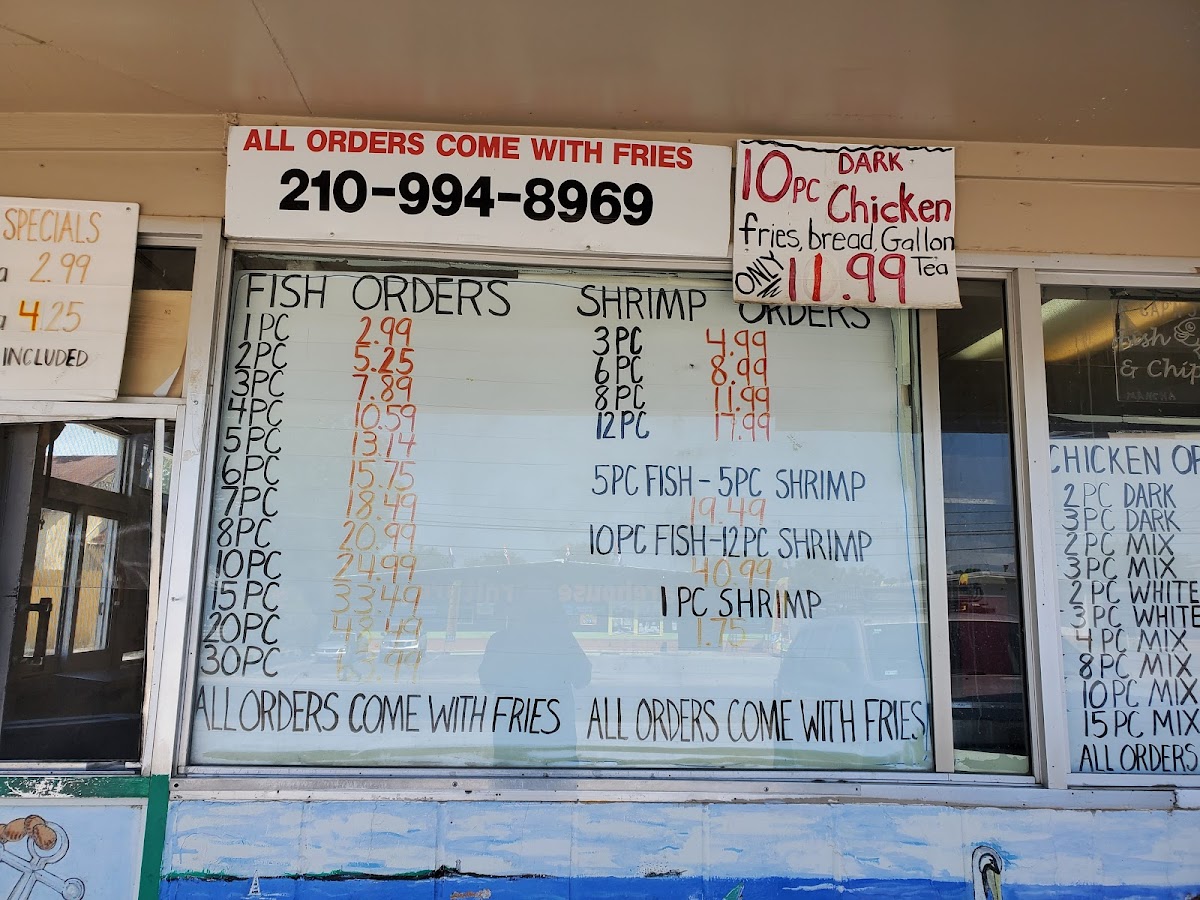 ALL ORDERS COME WITH FRIES
210-994-8969
10PC DARK
Chicken
fries, bread, Gallon
Tea
ONLY 11.99
SPECIALS
2.99
4.25
INCLUDED
FISH ORDERS
1PC 2.99
2PC 5.25
3PC 7.89
4PC 10.59
5PC 13.14
6PC 15.75
7PC 18.49
8PC 20.99
10PC 24.99
15PC 33.49
20PC
30PC
ALL ORDERS COME WITH FRIES
SHRIMP ORDERS
3PC 4.99
6PC 8.99
8PC 11.99
12PC 17.99
5PC FISH - 5PC SHRIMP
19.49
10PC FISH-12PC SHRIMP
40.99
1PC SHRIMP
1.75
ALL ORDERS COME WITH FRIES
& Chip
CHICKEN OR
2PC DARK
3PC DARK
2PC MIX
3PC MIX
2PC WHITE
3PC WHITE
4PC MIX
8PC MIX
10PC MIX
15PC MIX
ALL ORDERS